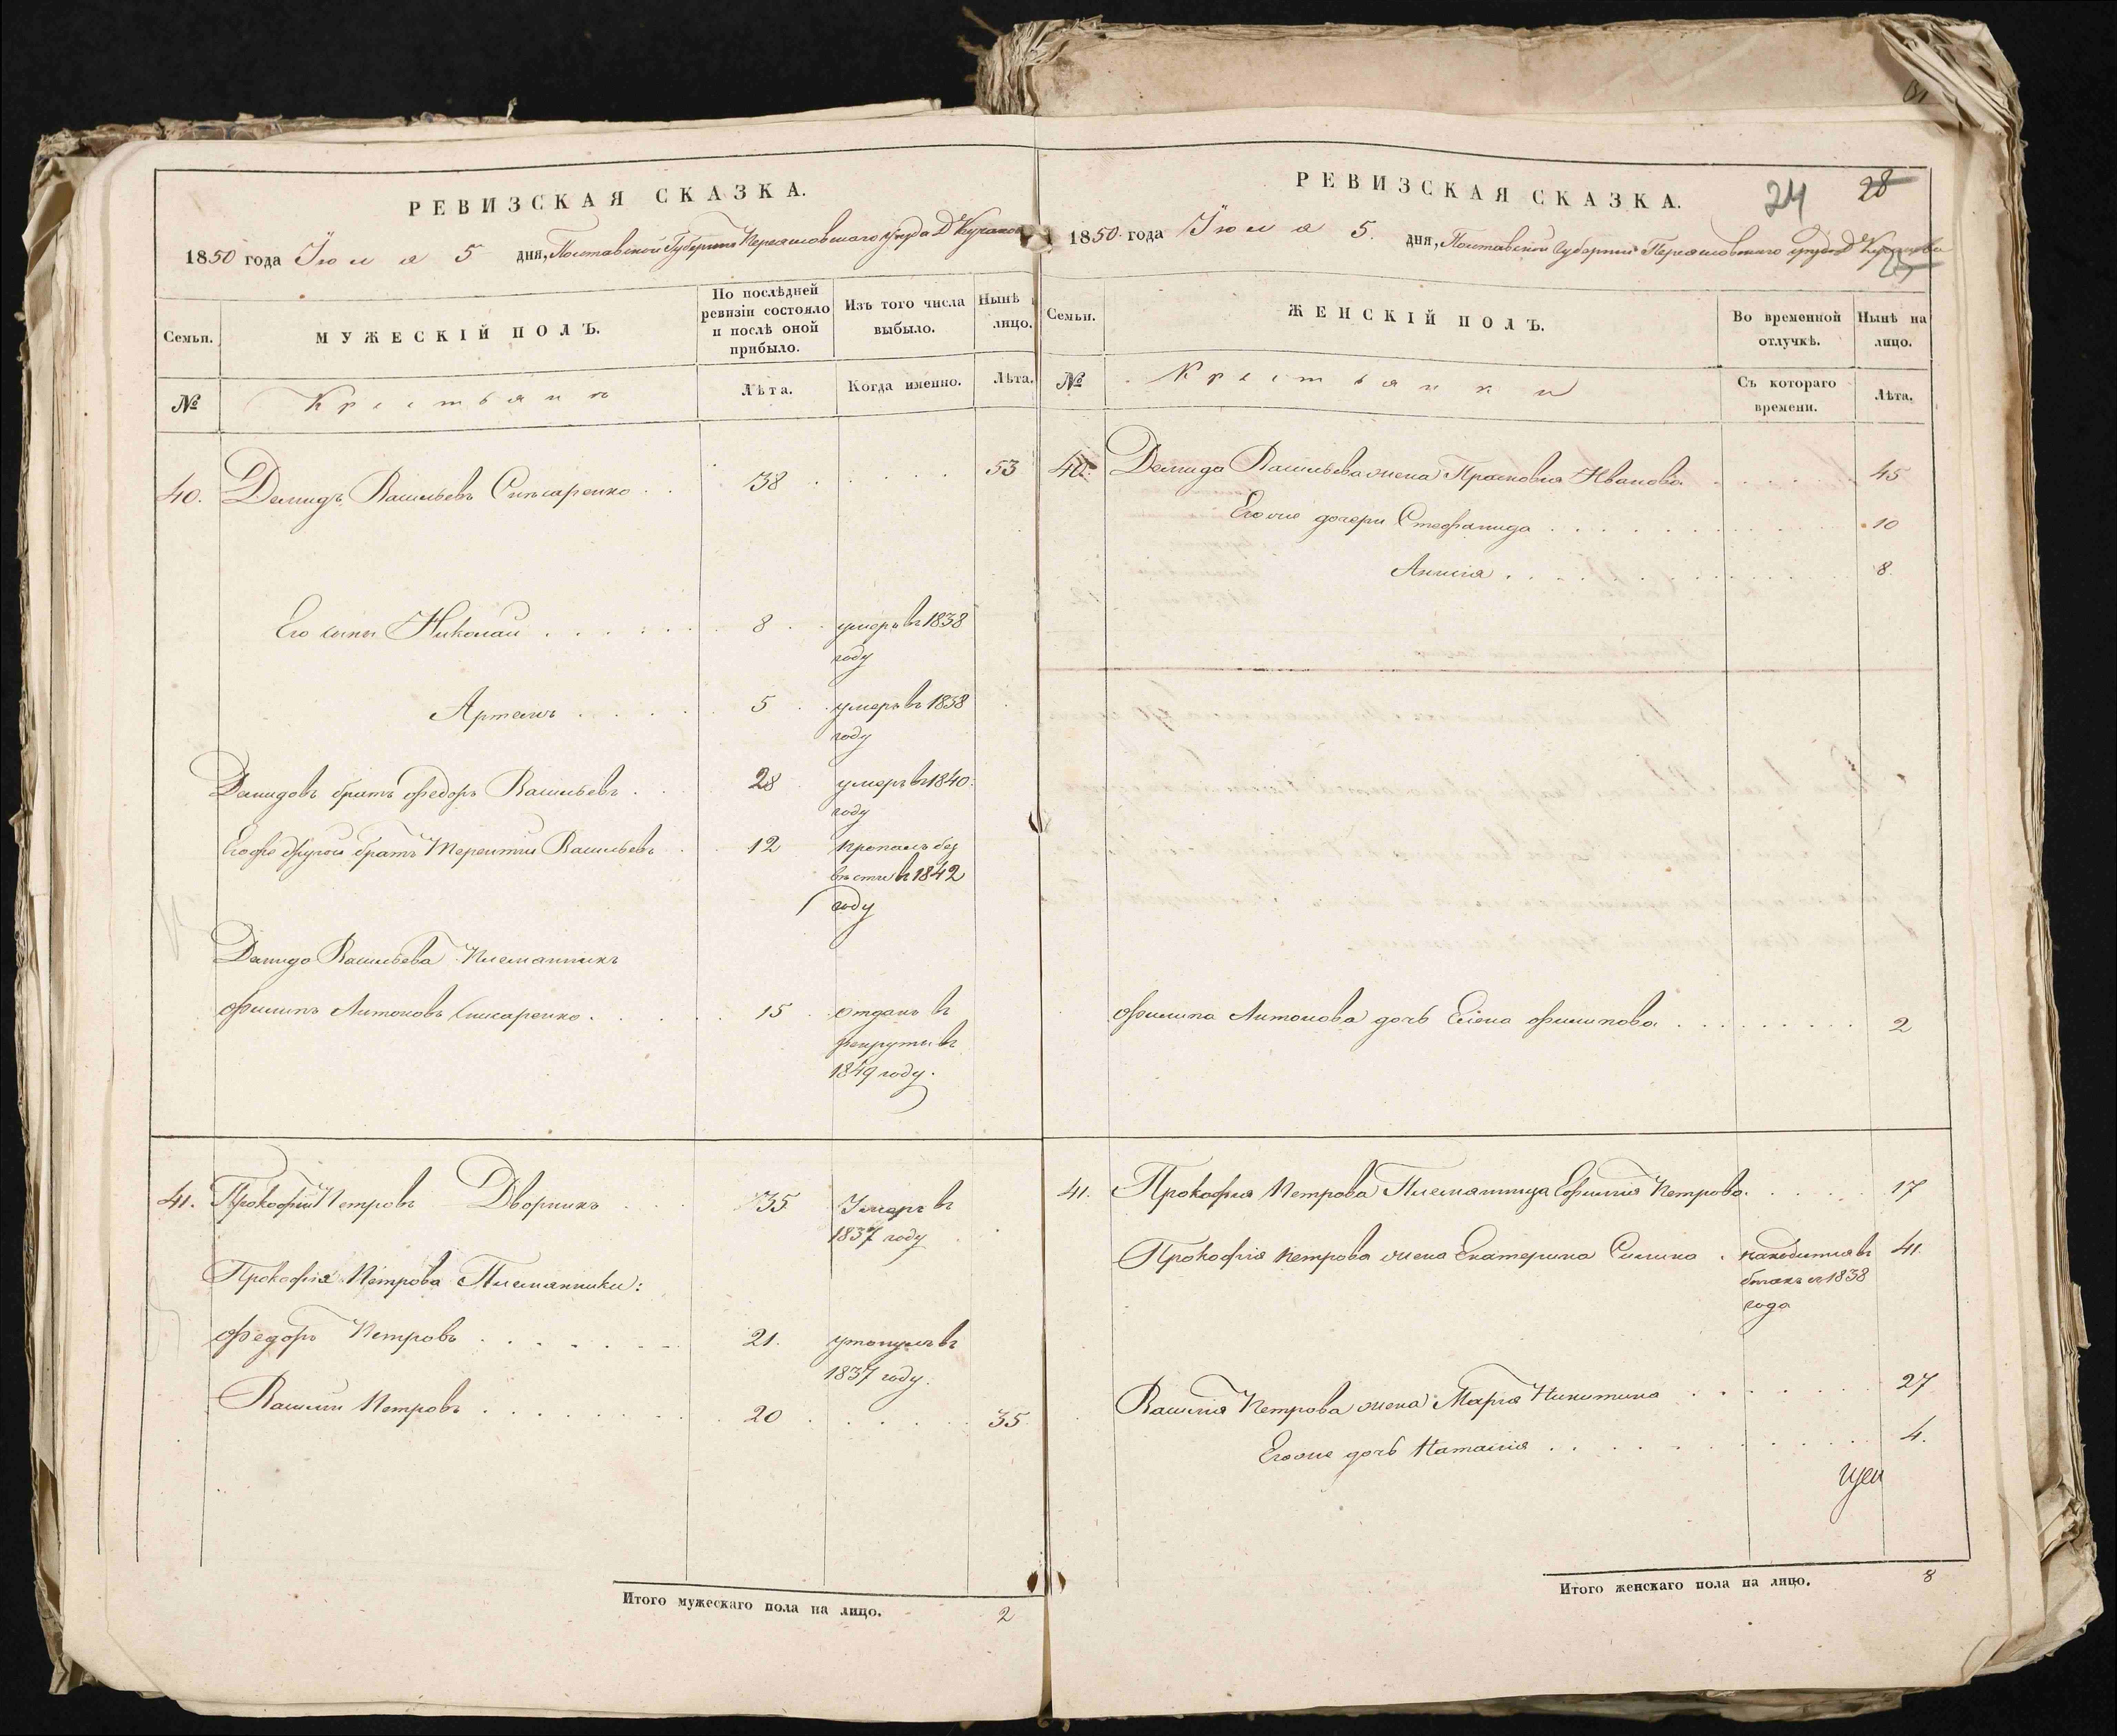 РЕВИЗСКАЯ СКАЗКА.
1850 года Июля 5 дня, Полтавской Губернии Переяславскаго уезда Д.
Семьи.
МУЖЕСКІЙ ПОЛЪ.
По послѣдней ревизіи состояло и послѣ оной прибыло.
Изъ того числа выбыло.
Нынѣ лицо.
№
Крестьянъ
Лѣта.
Когда именно.
Лѣта.
40. Демидъ Васильевъ 38 53
Его сыны Николай 8 умеръ въ 1838
году
Артемъ 5 умеръ въ 1838
году
Демидовъ братъ Федоръ Васильевъ 28 умеръ въ 1840
году
Его же другой братъ Терентій Васильевъ 12 пропалъ без
вѣсти въ 1842
году
Демида Васильева Племянникъ
Филипъ Антоновъ 15 отданъ въ
рекруты въ
1849 году.
41. Прокофій Петровъ Дворникъ 35 Умеръ въ
1837 году
Прокофія Петрова Племянники:
Федоръ Петровъ 21. утонулъ въ
1837 году.
Василій Петровъ 20 35
Итого мужескаго пола на лицо. 2
РЕВИЗСКАЯ СКАЗКА.
24 28
1850 года Июля 5. дня, Полтавской Губерніи Переяславскаго уезда Д.
25
Семьи.
ЖЕНСКІЙ ПОЛЪ.
Во временной отлучкѣ.
Нынѣ на лицо.
№
Крестьянки
Съ котораго времени.
Лѣта.
40. Демида Васильева жена Прасковья Иванова 45
Его же дочери Стефанида 10
8.
Филипа Антонова дочь Елена Филипова 2
41. Прокофія Петрова Племянница Ефимия Петрова 17
Прокофія Петрова жена Екатерина находится въ 41.
бегахъ с 1838
года
Василія Петрова жена Марія Никитина 27
Его же дочь Наталія 4.
Итого женскаго пола на лицо. 8